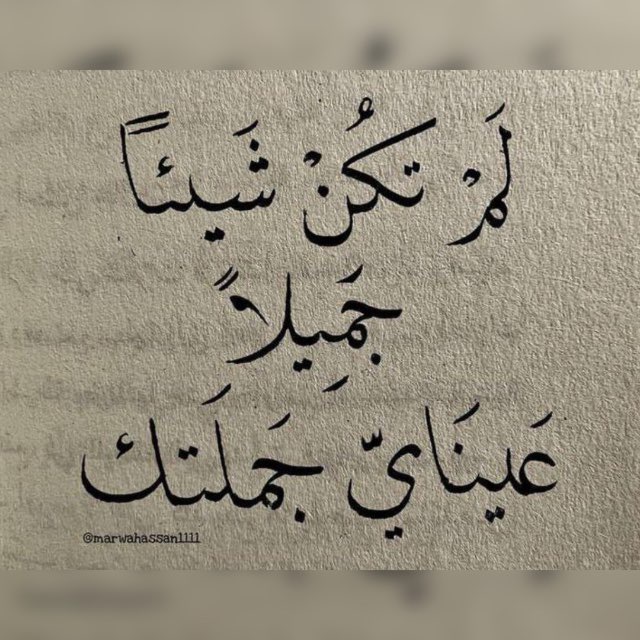 لَمْ تَكُنْ شَيئاً
جَمِيلاً
عَينَايّ جَمَلَتك
@marwahassan1111